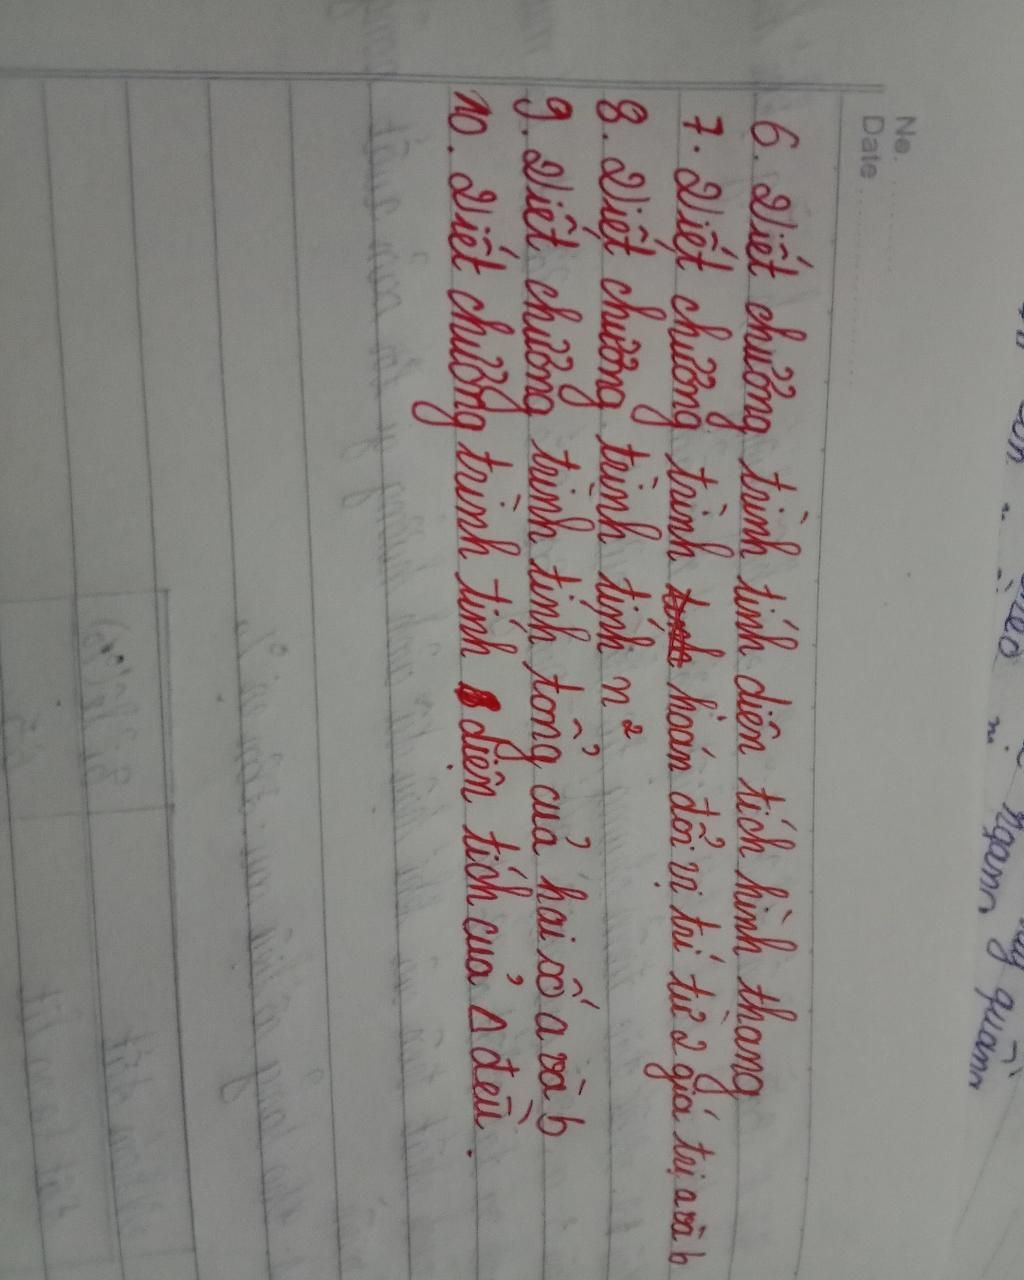 No.
Date
6. Viết chương trình tính diện tích hình thang
7. Viết chương trình hoán đổi vị trí từ 2 giá trị a và b
8. Viết chương trình tính n²
9. Viết chương trình tính tổng của hai số a và b
10. Viết chương trình tính diện tích của Δ đều.